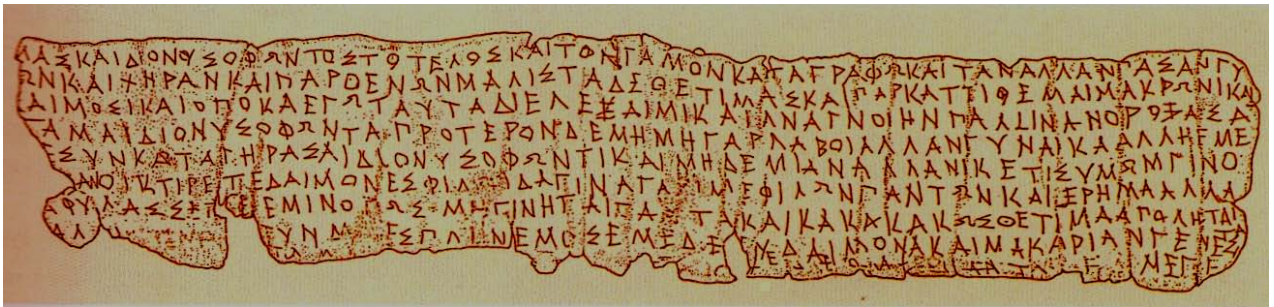 ΜΑΣΚΑΙΔΙΟΝΥΣΟΦΩΝΤΟΣΤΟΤΕΛΟΣΚΑΙΤΟΝΓΑΜΟΝΚΑΤΑΓΡΑΦΩΚΑΙΤΑΝΑΛΛΑΝΠΑΣΑΝΓΥ
ΩΝΚΑΙΧΗΡΑΝΚΑΙΠΑΡΘΕΝΩΝΜΑΛΙΣΤΑΔΕΘΕΤΙΜΑΣΚΑΙΠΑΡΚΑΤΤΙΘΕΜΑΙΜΑΚΡΩΝΙΚΑΙ
ΔΑΙΜΟΣΙΚΑΙΟΠΟΚΑΕΓΩΤΑΥΤΑΔΙΕΛΕΞΑΙΜΙΚΑΙΑΝΑΓΝΟΙΗΝΠΑΛΙΝΑΝΟΡΟΞΑΣΑ
ΓΑΜΑΙΔΙΟΝΥΣΟΦΩΝΤΑΠΡΟΤΕΡΟΝΔΕΜΗΜΗΓΑΡΛΑΒΟΙΑΛΛΑΝΓΥΝΑΙΚΑΑΛΛΗΕΜΕ
ΣΥΝΚΑΤΑΓΗΡΑΣΑΙΔΙΟΝΥΣΟΦΩΝΤΙΚΑΙΜΗΔΕΜΙΑΝΑΛΛΑΝΙΚΕΤΙΣΥΜΩΜΓΙΝΟ
ΑΝΟΙΚΤΙΡΕΤΕΔΑΙΜΟΝΕΣΦΙΛ ΔΑΓΙΝΑΓΑ ΙΜΕΦΙΛΩΝΠΑΝΤΩΝΚΑΙΕΡΗΜΑΑΛΛΑ
ΑΦΥΛΑΣΣΕΤΕΕΜΙΝΟΠΩΣΜΗΓΙΝΗΤΑΙΤΑ ΤΑΚΑΙΚΑΚΑΚΑΚΩΣΘΕΤΙΜΑΑΠΟΛΗΤΑΙ
ΑΛ ΥΝΜ ΕΣΠΛΙΝΕΜΟΣΕΜΕΔΕ ΥΔΑΙΜΟΝΑΚΑΙΜΑΚΑΡΙΑΝΓΕΝΕΣΤΑΙ
ΤΟ ΕΜΕ